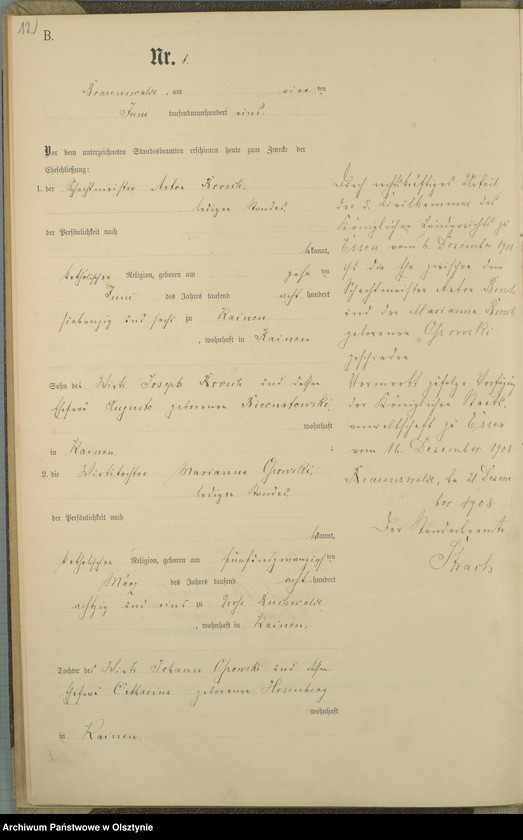 12
B.
Nr. 6.
Braunswalde, am vierten
Juni tausendneunhundert eins.
Vor dem unterzeichneten Standesbeamten erschienen heute zum Zwecke der
Eheschließung:
1. der Schachtmeister Anton
ledigen Standes
der Persönlichkeit nach
bekannt,
katholischer Religion, geboren am zehnten
Juni des Jahres tausend acht hundert
siebenzig und sechs zu Kainen
, wohnhaft in Kainen
Sohn des Wirts Joseph und dessen
Ehefrau Auguste geborenen
wohnhaft
in Kainen
2. die Wirtstochter Marianna
ledigen Standes
der Persönlichkeit nach
bekannt,
katholischer Religion, geboren am fünfundzwanzigsten
März des Jahres tausend acht hundert
achtzig und eins zu Groß Buchwalde
, wohnhaft in Kainen.
Tochter des Wirts Johann und dessen
Ehefrau Catharina geborenen Hosenberg
wohnhaft
in Kainen.
Durch rechtskräftiges Urteil
der 5. Civilkammer des
Königlichen Landgerichts zu
Essen vom 6. Dezember 1908
ist die Ehe zwischen dem
Schachtmeister Anton
und der Marianna
geborenen
geschieden.
Vermerkt zufolge Verfügung
der Königlichen Staats-
anwaltschaft zu Essen
vom 16. Dezember 1908.
Braunswalde, den 21 Dezem-
ber 1908
Der Standesbeamte
Archiwum Państwowe w Olsztynie